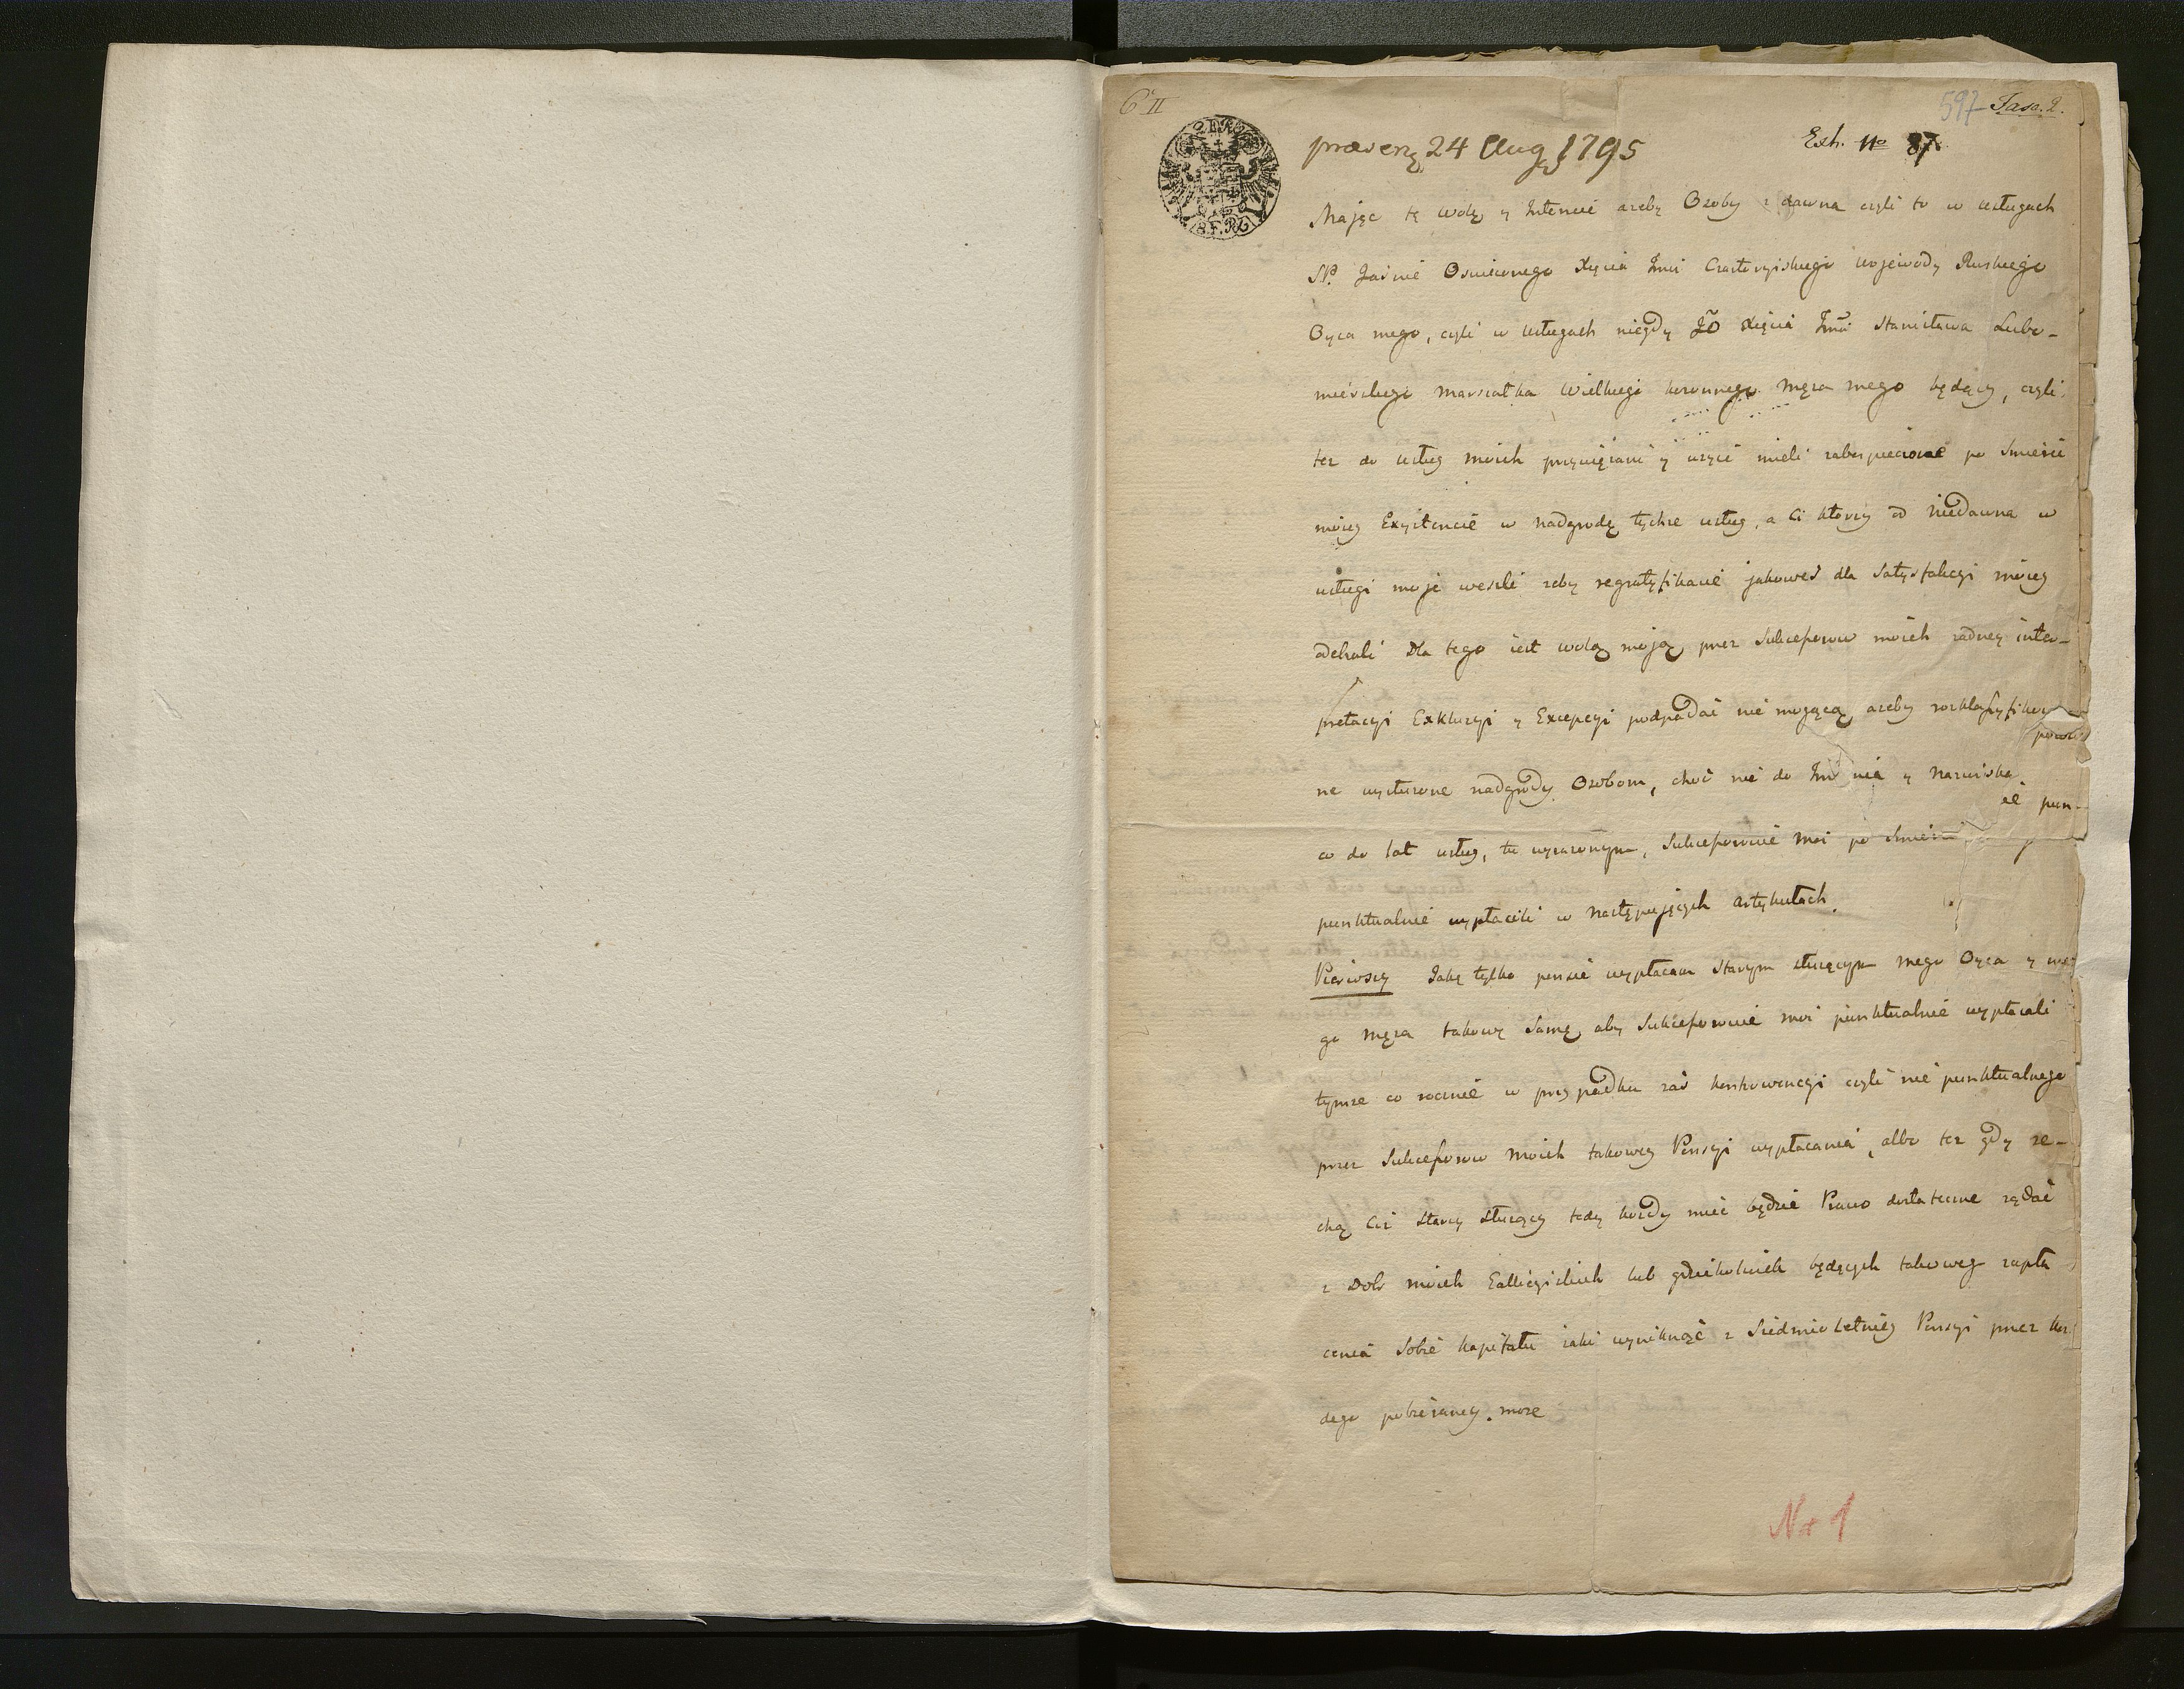 6 II
597 Fasc. 2.
præsenz 24 Aug 1795
Exh. No 87
Mając tę wolę y Intencie azeby Osoby z dawna czyli to w usługach
SP. Jasnie Oswieconego Xięcia Imci Czartoryiskiego Wojewody Ruskiego
Oyca mego, czyli w usługach niegdy JO Xięcia Imci Stanisława Lubo-
mierskiego Marszałka Wielkiego koronnego męza mego będący, czyli
tez do usług moich przywięzani y uzyci mieli zabespieczone po Smierci
moiey Exystencie w nadgrodę tychze usług, a Ci ktorzy od niedawna w
usługi moje weszli zeby regratyfikacie jakowes dla Satysfakcyi moiey
odebrali Dla tego iest wolą moją przez Sukcessorow moich zadney inter-
pretacyi Exkluzyi y Excepcyi podpadać nie mogącą, azeby rozklassyfikowa
ne wyłuszone nadgrody Osobom, choć nie do Imienia y Nazwiska
co do lat usług, tu wyrazonym, Sukcessorowie moi po Smierci
punktualnie wypłacili w następujących artykułach.
Pierwszy Jaką tylko pensie wypłacam Starym słuzącym mego Oyca y me
go Męza takową Samę aby Sukcessorowie moi punktualnie wypłacali
tymze co rocznie w przypadku zas kontrowencyi czyli nie punktualnego
przez Sukcessorow Moich takowey Pensyi wypłacania, albo tez gdy ze-
chcą Ciz starzy słuzący tedy kozdy mieć będzie Prawo dostateczne ządać
z Dobr moich Gallicyiskich lub gdziekolwiek będących takowey zapła
cenia Sobie kapitału iaki wyniknąć z Siedmioletniey Pensyi przez koz
dego pobieraney. moze
No 1